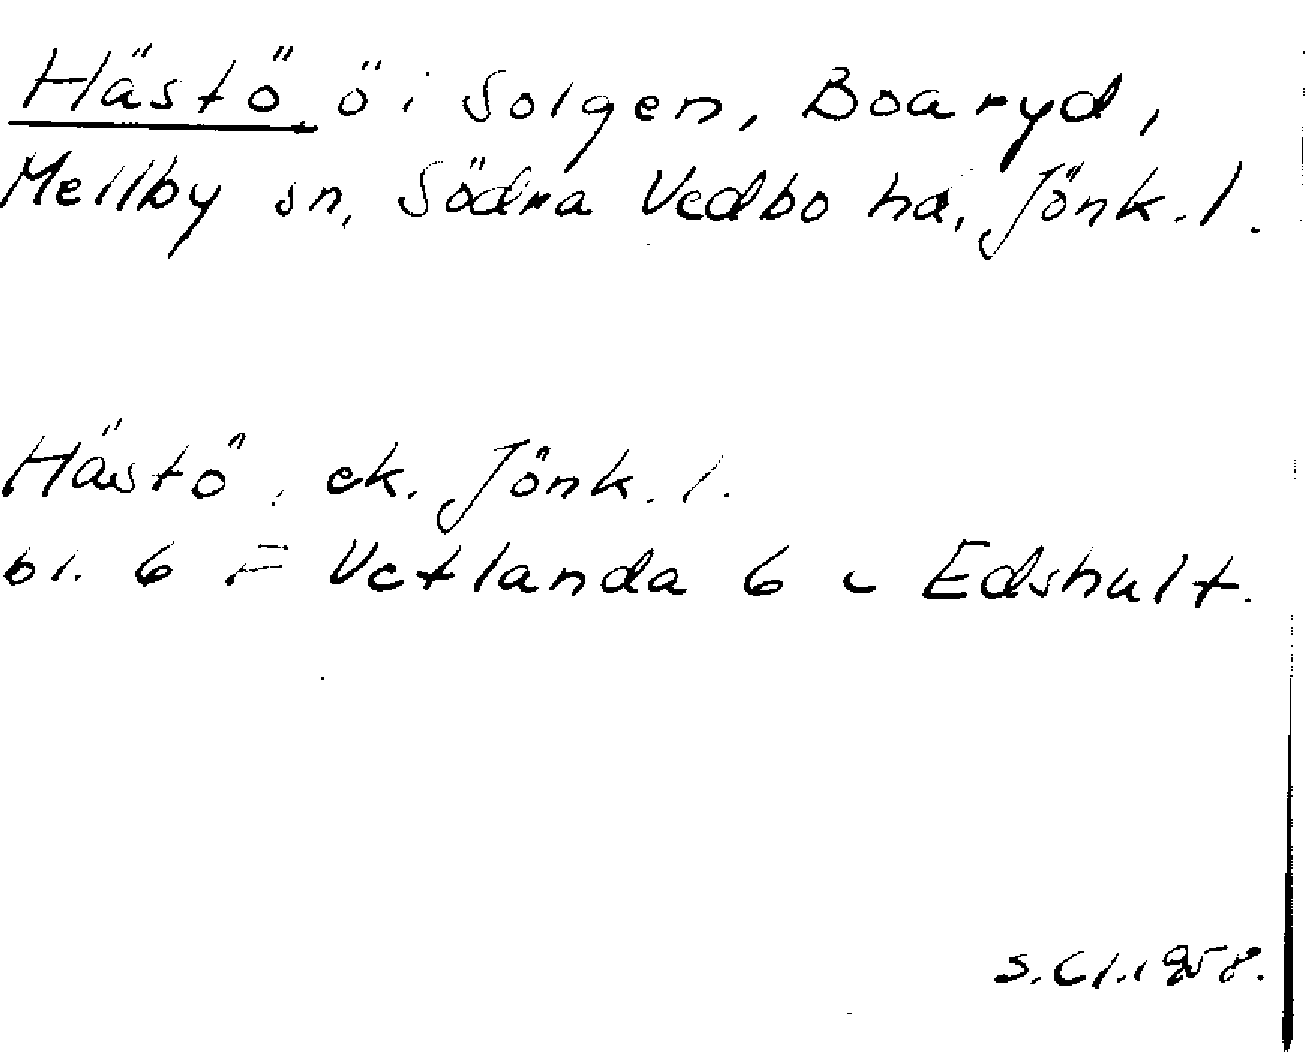 Hästö, ö i Solgen, Boaryd,
Mellby sn, Södra Vedbo hd, Jönk. l.
Hästö, ek. Jönk. l.
bl. 6 F Vetlanda 6 c Edshult.
S. Cl. 1958.